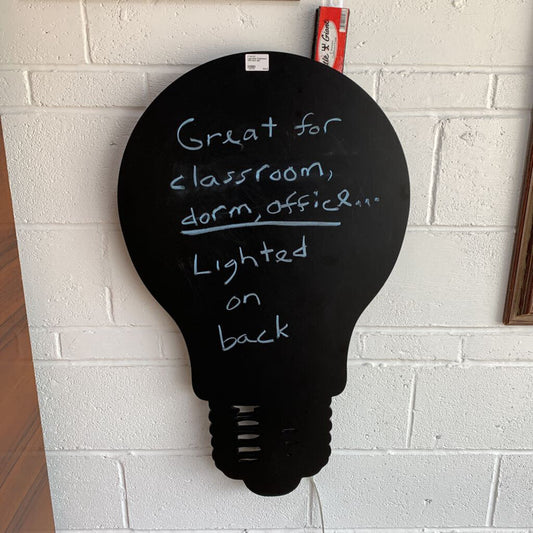 Great for
classroom,
dorm, office...
Lighted
on
back